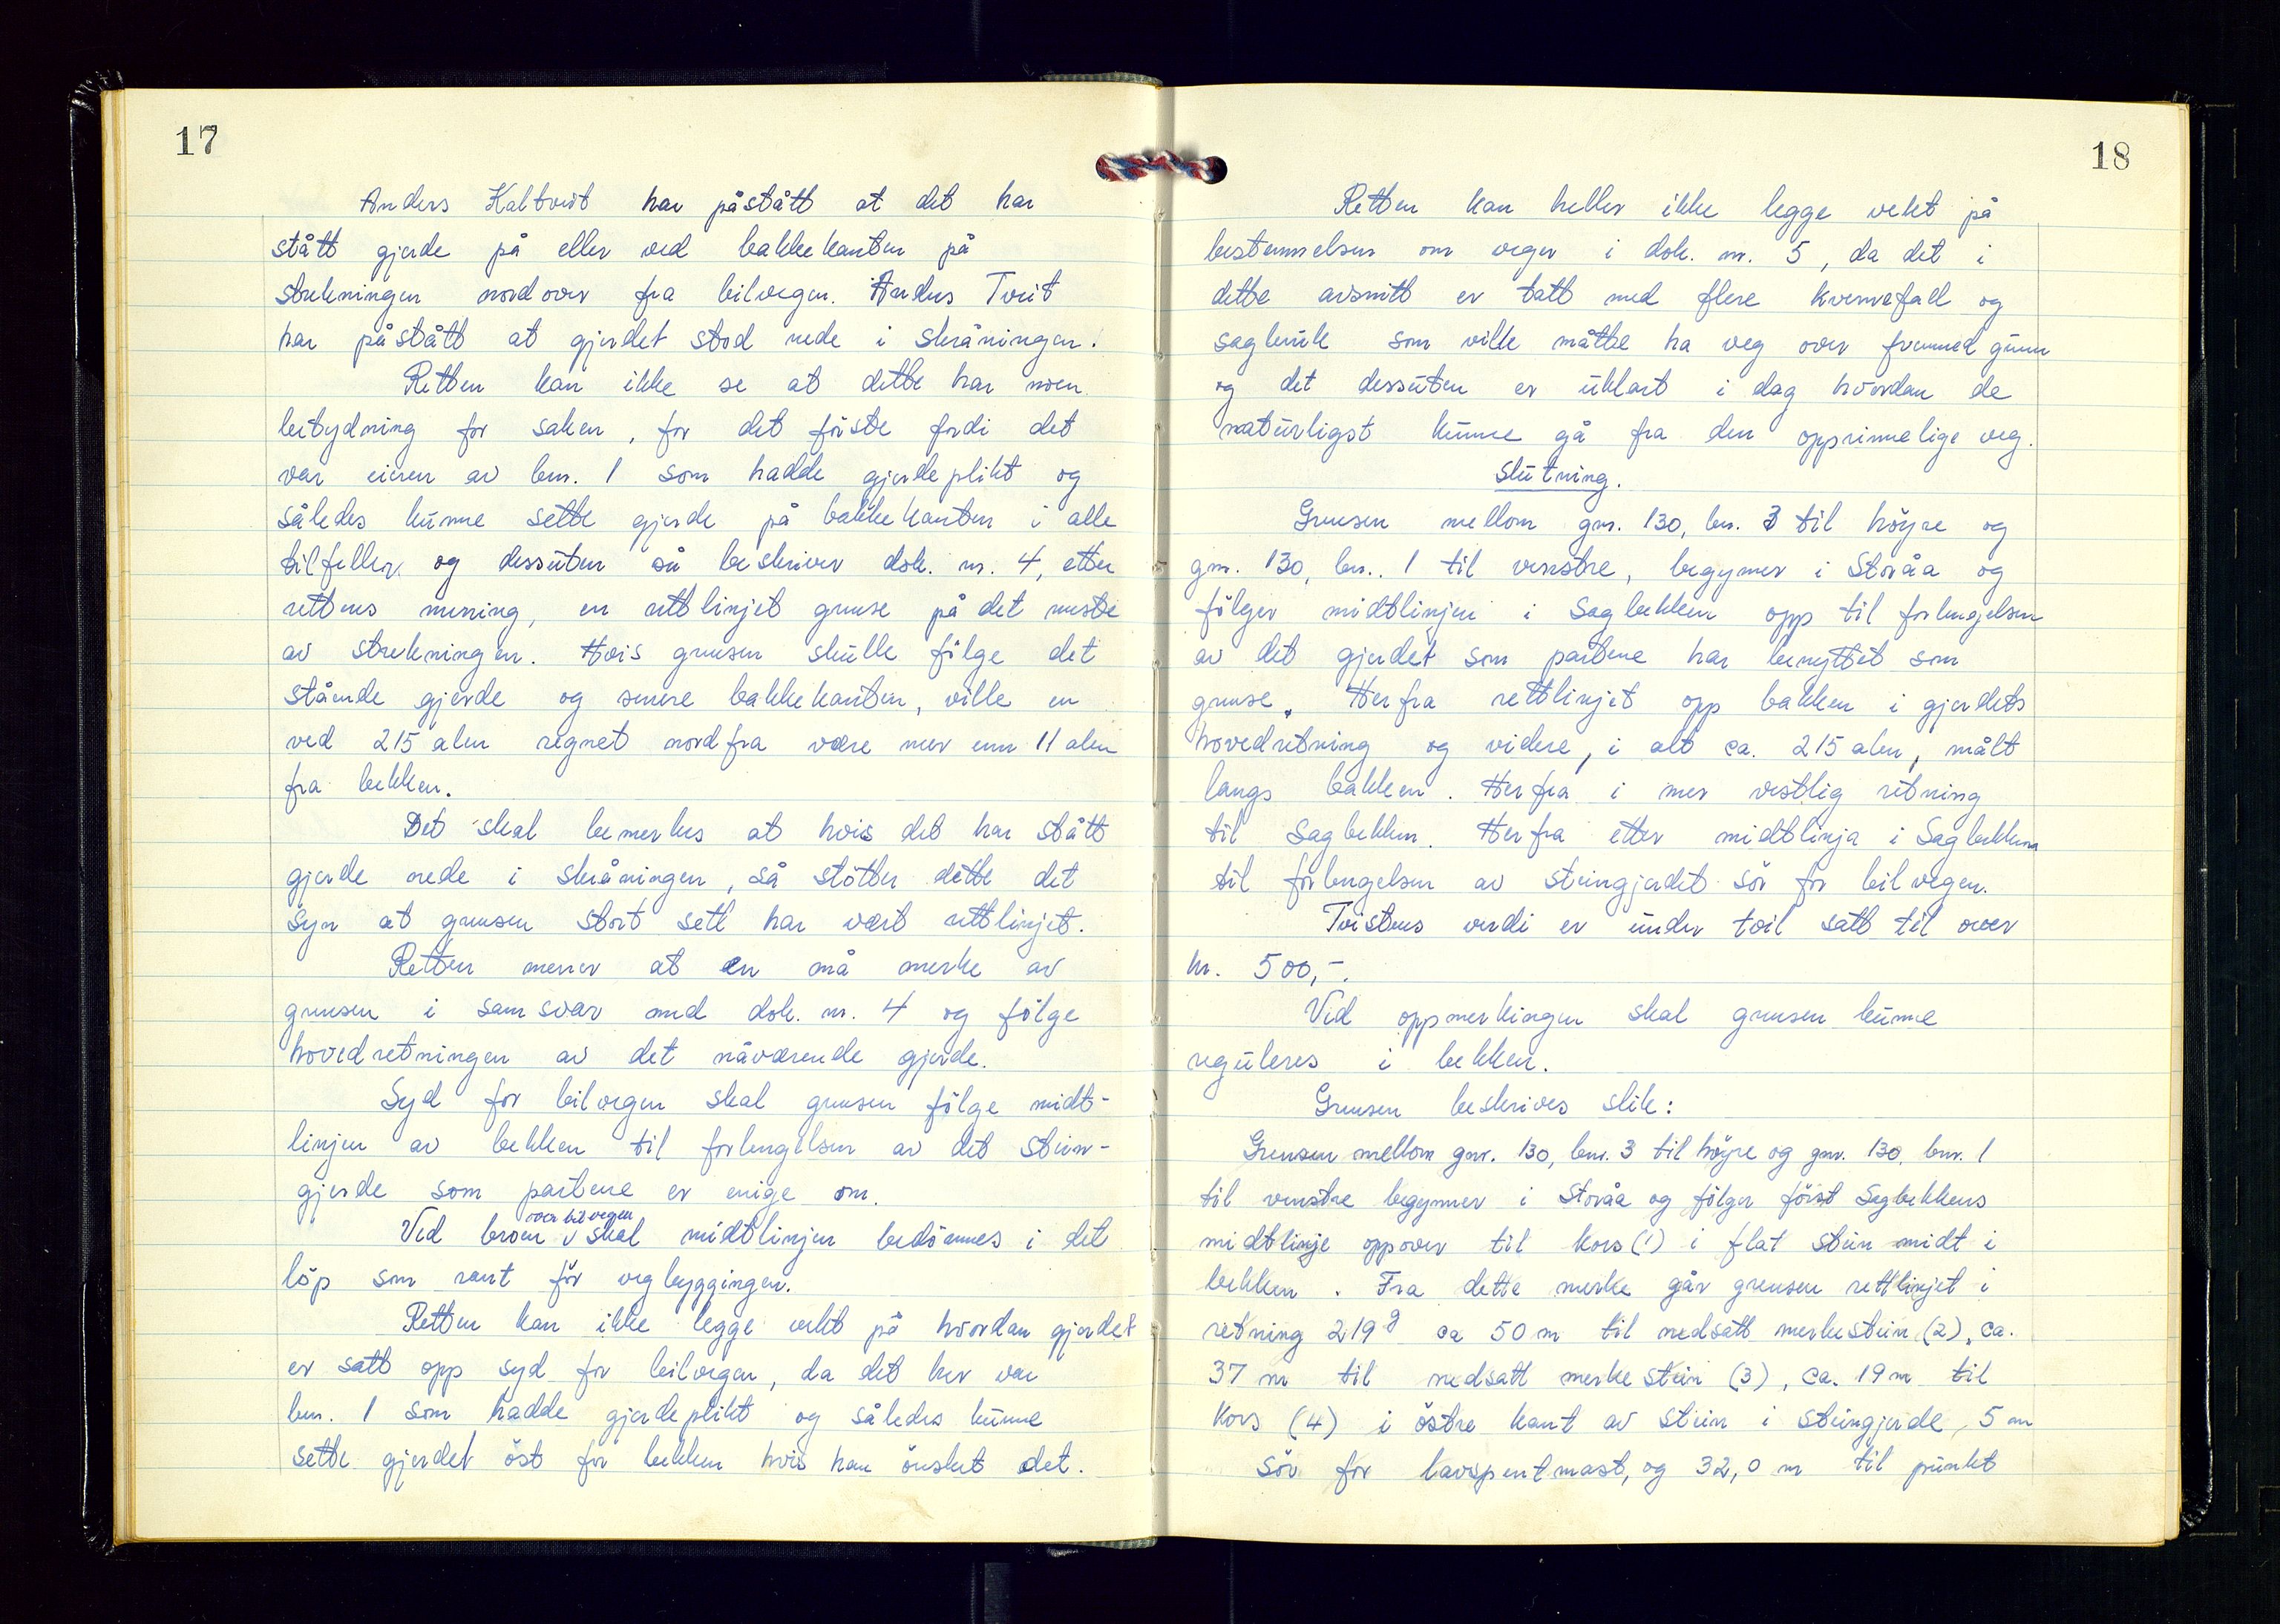 17
Anders Kaltveit har påstått at det har
stått gjerde på eller ved bakkekanten på
strekningen nordover fra bilvegen. Anders Tveit
har påstått at gjerdet stod nede i skråningen.
Retten kan ikke se at dette har noen
betydning for saken, for det förste fordi det
var eieren av bnr. 1 som hadde gjerdeplikt og
således kunne sette gjerde på bakkekanten i alle
tilfeller og dessuten så beskriver dok. nr. 4, etter
rettens mening, en rettlinjet grense på det meste
av strekningen. Hvis grensen skulle fölge det
stående gjerde og senere bakkekanten, ville en
ved 215 alen regnet nordfra være mer enn 11 alen
fra bekken.
Det skal bemerkes at hvis det har stått
gjerde nede i skråningen, så stötter dette det
syn at grensen stort sett har vært rettlinjet.
Retten mener at en må merke av
grensen i samsvar med dok. nr. 4 og fölge
hovedretningen av det nåværende gjerde.
Syd for bilvegen skal grensen fölge midt-
linjen av bekken til forlengelsen av det stein-
gjerde som partene er enige om.
Ved broen over bilvegen skal midtlinjen bedömmes i det
löp som rant för vegbyggingen.
Retten kan ikke legge vekt på hvordan gjerdet
er satt opp syd for bilvegen, da det her var
bnr. 1 som hadde gjerdeplikt og således kunne
sette gjerdet öst for bekken hvis han önsket det.
18
Retten kan heller ikke legge vekt på
bestemmelsen om veger i dok. nr. 5, da det i
dette avsnitt er tatt med flere kvernefall og
sagbruk som ville måtte ha veg over fremmed grunn
og det dessuten er uklart i dag hvordan de
naturligst kunne gå fra den opprinnelige veg.
Slutning.
Grensen mellom gnr. 130, bnr. 3 til höyre og
gnr. 130, bnr. 1 til venstre, begynner i Storåa og
fölger midtlinjen i Sagbekken opp til forlengelsen
av det gjerdet som partene har benyttet som
grense. Herfra rettlinjet opp bakken i gjerdets
hovedretning og videre, i alt ca. 215 alen, målt
langs bakken. Herfra i mer vestlig retning
til Sagbekken. Herfra etter midtlinja i Sagbekken
til forlengelsen av steingjerdet sör for bilvegen.
Tvistens verdi er under tvil satt til over
kr. 500,-.
Ved oppmerkingen skal grensen kunne
reguleres i bekken.
Grensen beskrives slik:
Grensen mellom gnr. 130, bnr. 3 til höyre og gnr. 130, bnr. 1
til venstre begynner i Storåa og fölger först Sagbekkens
midtlinje oppover til kors (1) i flat stein midt i
bekken. Fra dette merke går grensen rettlinjet i
retning 219g ca 50 m til nedsatt merkestein (2), ca.
37 m til nedsatt merkestein (3), ca. 19 m til
kors (4) i östre kant av stein i steingjerde, 5 m
sör for lavspentmast, og 32,0 m til punkt